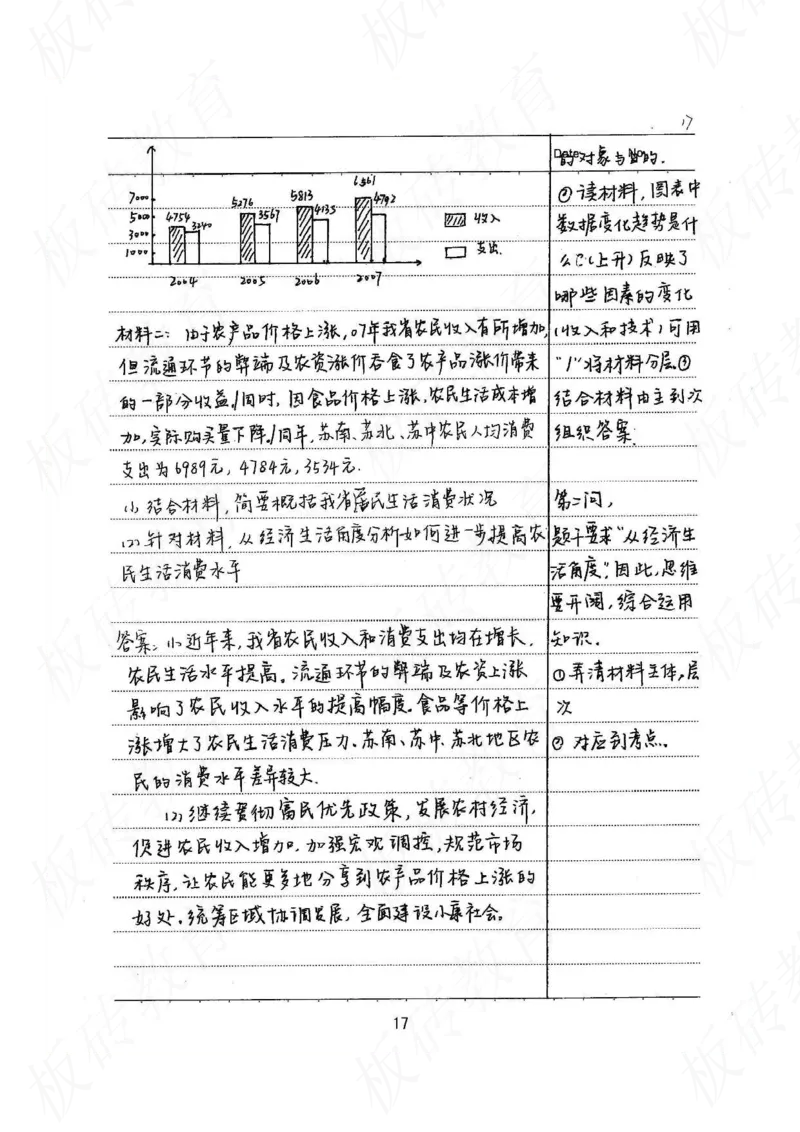 17
7000
5000
3000
1000
4754
3240
5276
3567
5813
4135
6561
4792
2004
2005
2006
2007
收入
支出
材料二：由于农产品价格上涨，07年我省农民收入有所增加，
但流通环节的弊端及农资涨价吞食了农产品涨价带来
的一部分收益/同时，因食品价格上涨，农民生活成本增
加，实际购买量下降/同年，苏南、苏北、苏中农民人均消费
支出为6989元，4784元，3534元.
(1)结合材料，简要概括我省居民生活消费状况
(2)针对材料，从经济生活角度分析如何进一步提高农
民生活消费水平
答案：(1)近年来，我省农民收入和消费支出均在增长，
农民生活水平提高。流通环节的弊端及农资上涨
影响了农民收入水平的提高幅度。食品等价格上
涨增大了农民生活消费压力.苏南、苏中、苏北地区农
民的消费水平差异较大.
(2)继续贯彻富民优先政策，发展农村经济，
促进农民收入增加.加强宏观调控，规范市场
秩序，让农民能更多地分享到农产品价格上涨的
好处.统筹区域协调发展，全面建设小康社会。
的对象与目的.
②读材料，图表中
数据变化趋势是什
么？(上升)反映了
哪些因素的变化
(收入和技术)可用
"/"将材料分层.①
结合材料由主到次
组织答案.
第二问，
题干要求"从经济生
活角度".因此，思维
要开阔，综合运用
知识.
①弄清材料主体，层
次
②对应到考点.
17
板砖教育